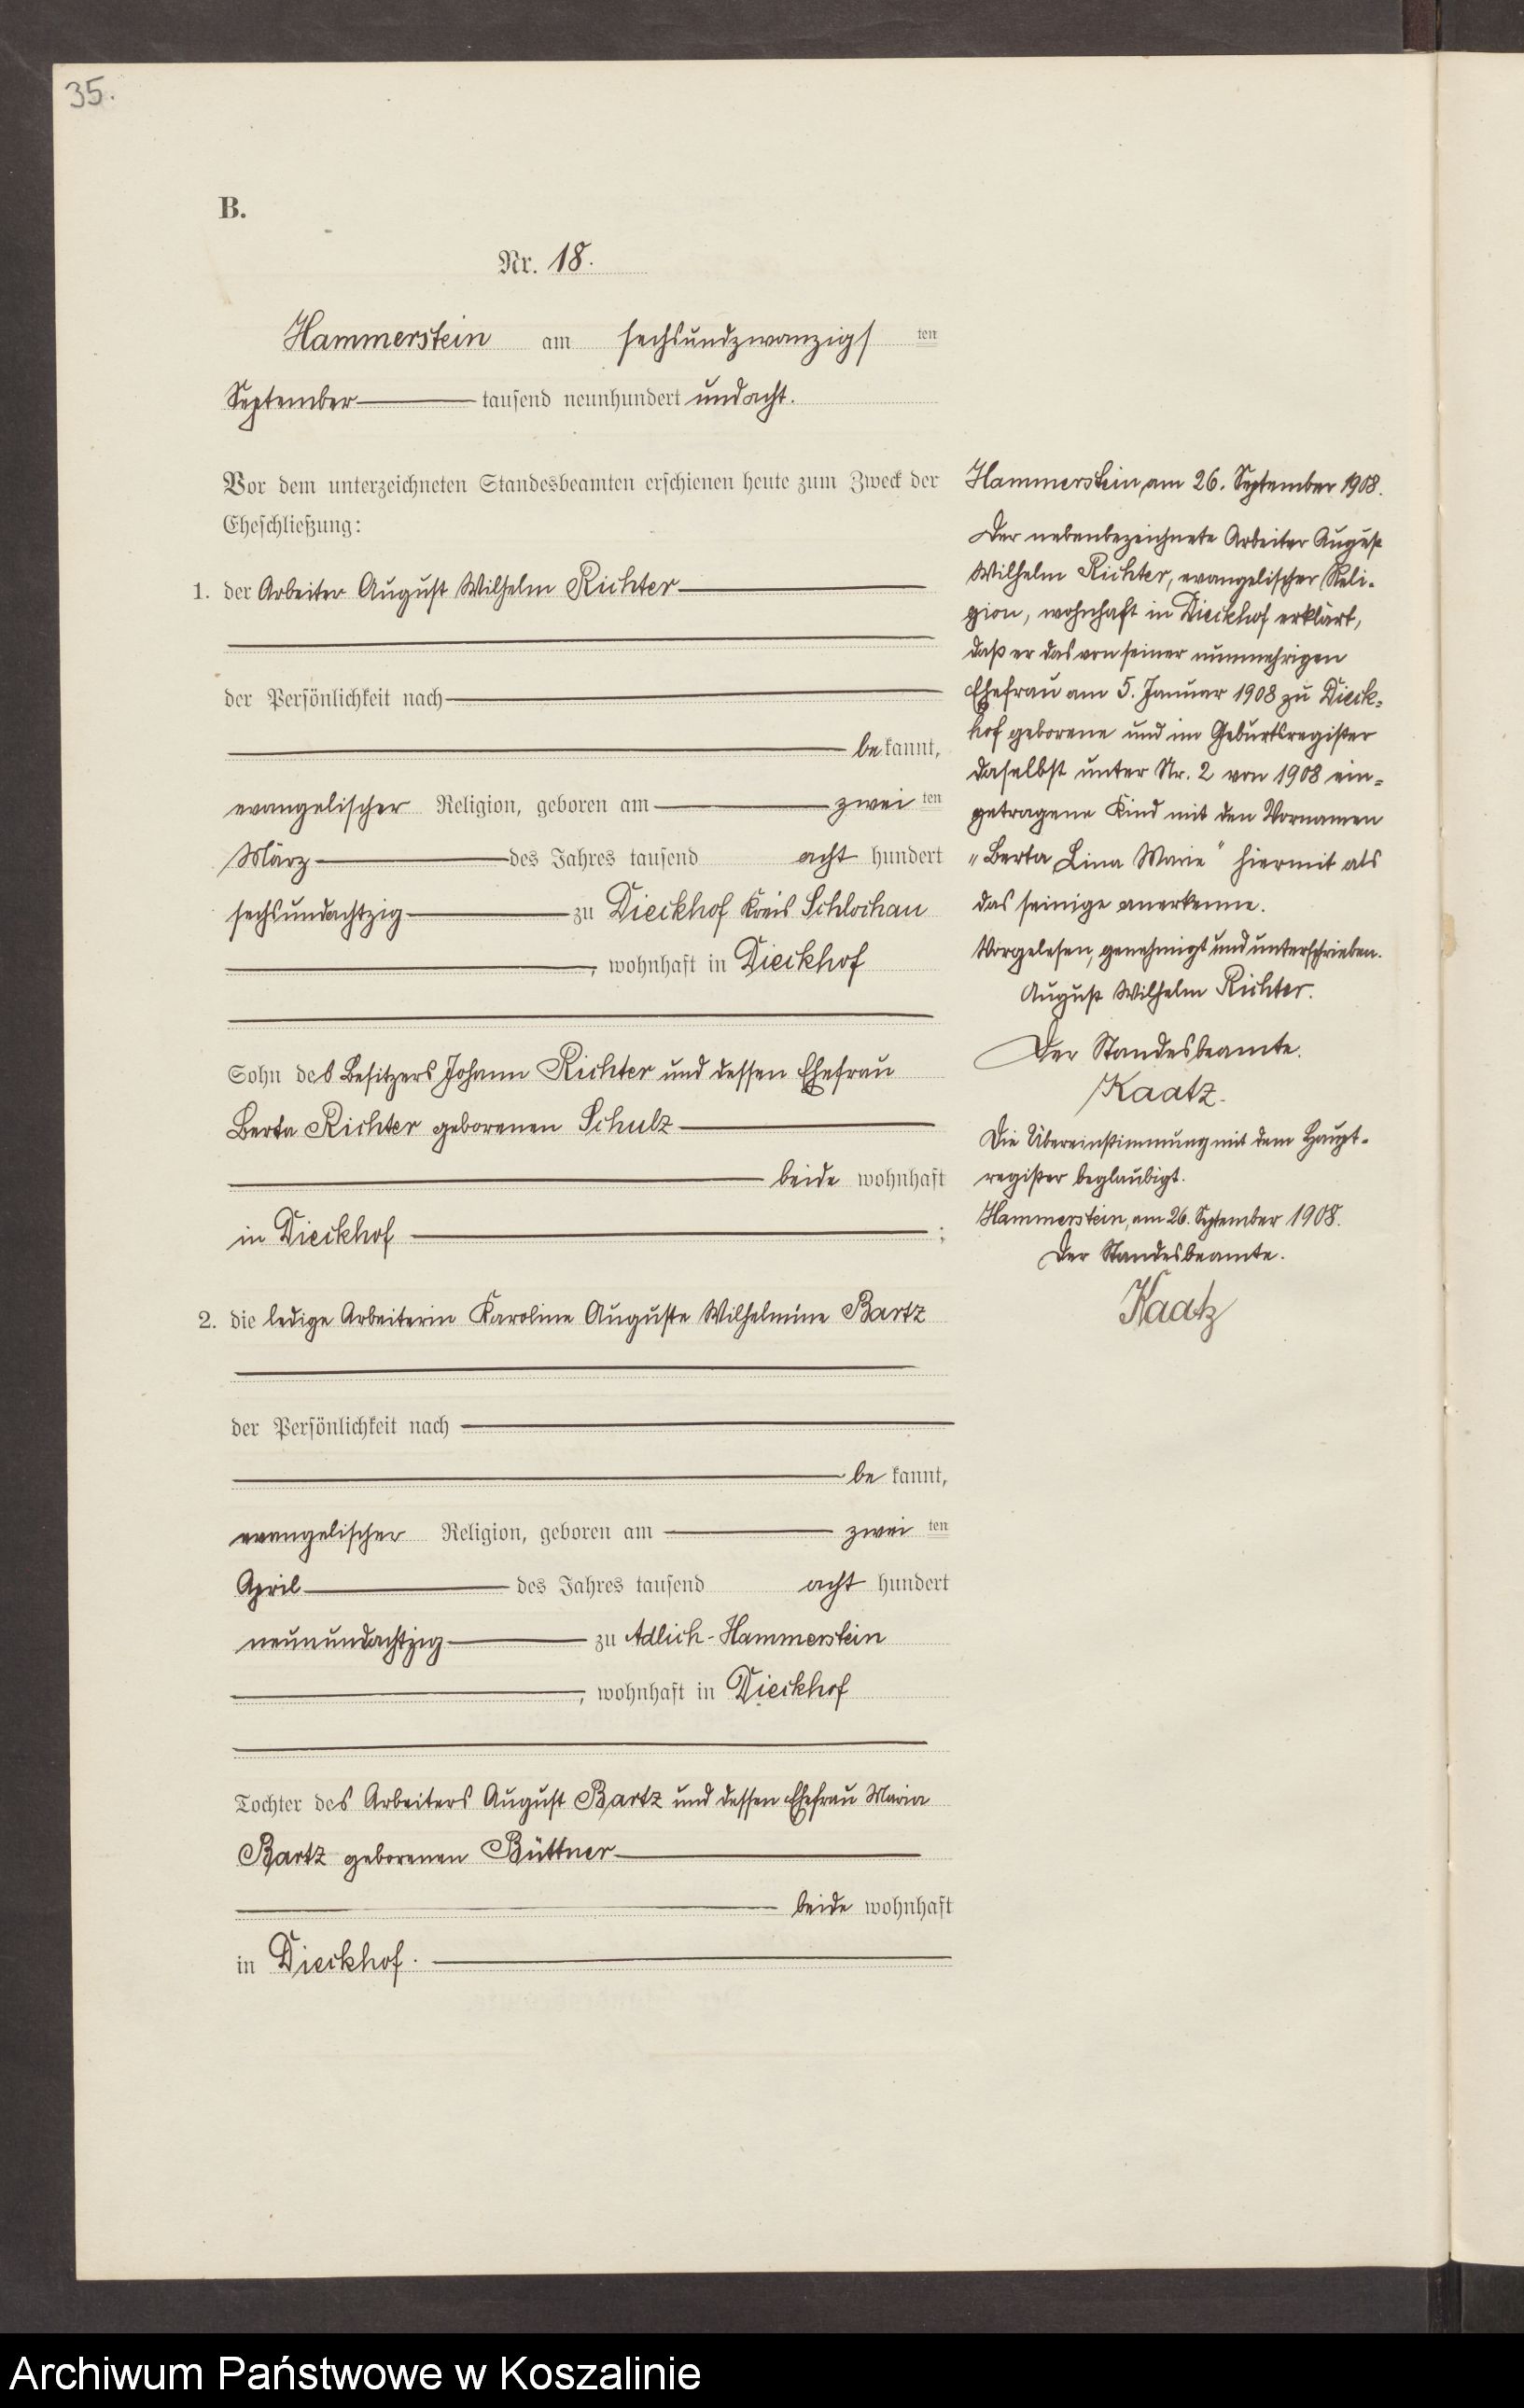 35.
B.
Nr. 18.
Hammerstein am sechsundzwanzigsten
September tausend neunhundert undacht.
Vor dem unterzeichneten Standesbeamten erschienen heute zum Zweck der
Eheschließung:
1. der Arbeiter August Wilhelm Richter
der Persönlichkeit nach
bekannt,
evangelischer Religion, geboren am zweiten
März des Jahres tausend acht hundert
sechsundachtzig zu Dieckhof Kreis Schlochau
, wohnhaft in Dieckhof
Sohn des Besitzers Johann Richter und dessen Ehefrau
Berta Richter geborenen Schulz
beide wohnhaft
in Dieckhof ;
2. die ledige Arbeiterin Karoline Auguste Wilhelmine Bartz
der Persönlichkeit nach
bekannt,
evangelischer Religion, geboren am zweiten
April des Jahres tausend acht hundert
neunundachtzig zu Adlich-Hammerstein
, wohnhaft in Dieckhof
Tochter des Arbeiters August Bartz und dessen Ehefrau Maria
Bartz geborenen Büttner
beide wohnhaft
in Dieckhof.
Hammerstein, am 26. September 1908.
Der nebenbezeichnete Arbeiter August
Wilhelm Richter, evangelischer Reli-
gion, wohnhaft in Dieckhof erklärt,
daß er das von seiner nunmehrigen
Ehefrau am 5. Januar 1908 zu Dieck-
hof geborene und im Geburtsregister
daselbst unter Nr. 2 von 1908 ein-
getragene Kind mit den Vornamen
"Berta Lina Marie" hiermit als
das seinige anerkenne.
Vorgelesen, genehmigt und unterschrieben.
August Wilhelm Richter.
Der Standesbeamte.
Kaatz.
Die Übereinstimmung mit dem Haupt-
register beglaubigt.
Hammerstein, am 26. September 1908.
Der Standesbeamte.
Kaatz
Archiwum Państwowe w Koszalinie